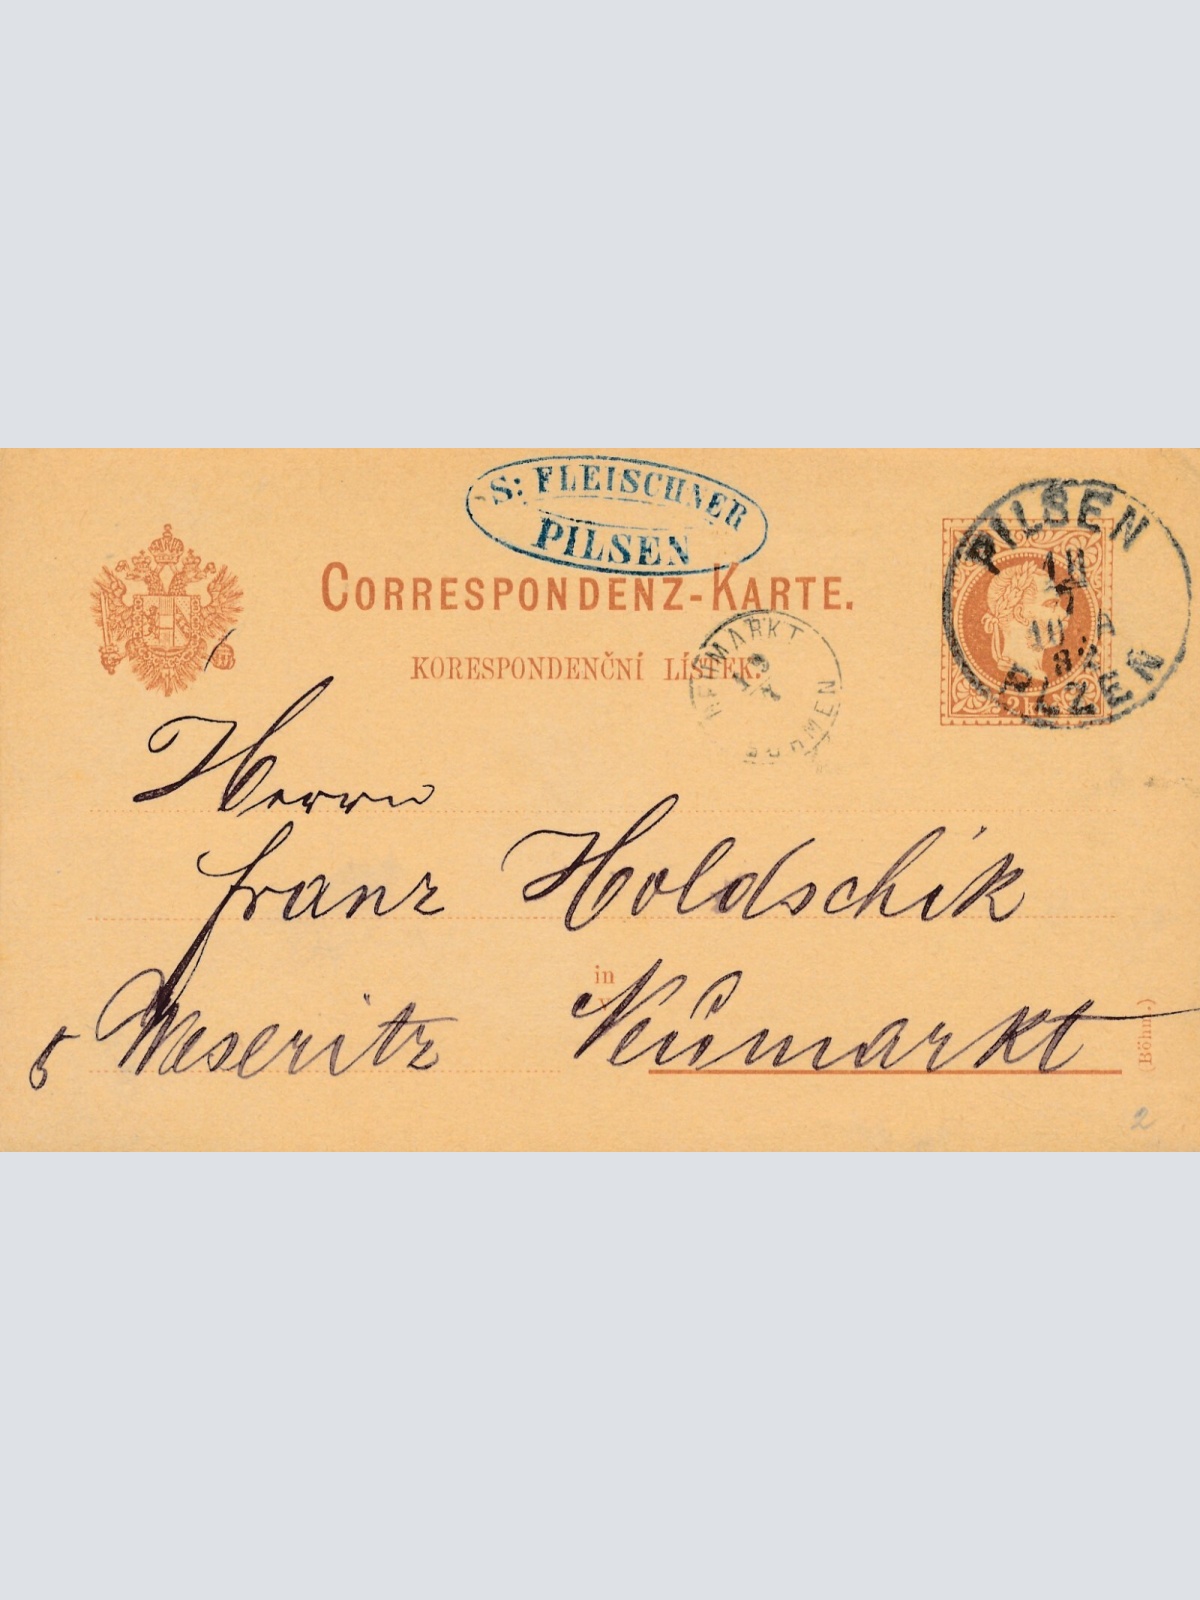 S: FLEISCHNER
PILSEN
CORRESPONDENZ-KARTE.
KORESPONDENČNÍ LÍSTEK.
PILSEN
18
7
10 A
82
PILZEN
2 Kr
NEUMARKT
19
7
BÖHMEN
Herrn
Franz Holdschik
in
Weseritz Neumarkt
(Böhm.)
2